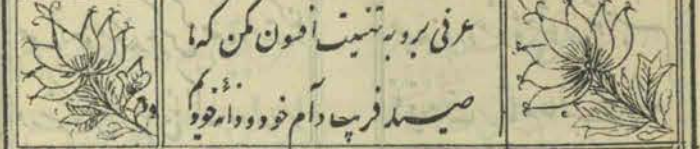 عرفی برو به تهنیت افسون مکن که ما
صید فریب دام خود و دانه خودیم